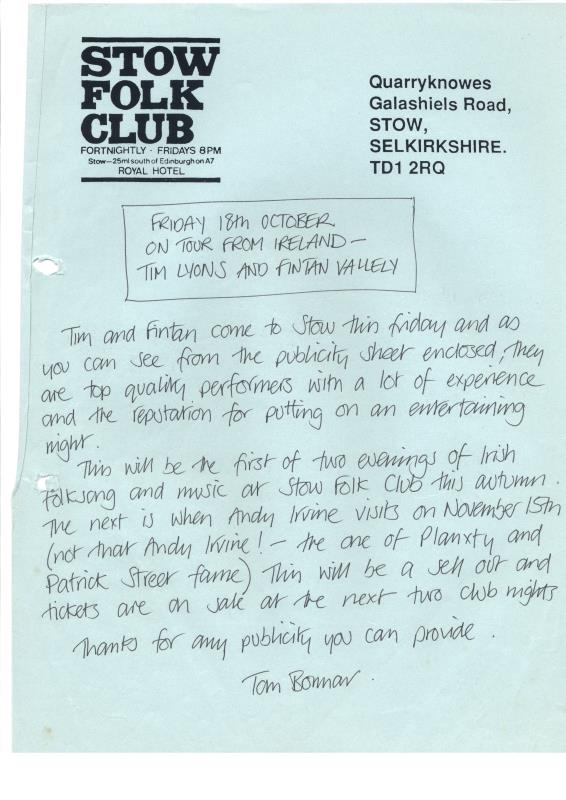 STOW
FOLK
CLUB
FORTNIGHTLY · FRIDAYS 8PM
Stow—25ml south of Edinburgh on A7
ROYAL HOTEL
Quarryknowes
Galashiels Road,
STOW,
SELKIRKSHIRE.
TD1 2RQ
FRIDAY 18th OCTOBER
ON TOUR FROM IRELAND —
TIM LYONS AND FINTAN VALLELY
Tim and Fintan come to Stow this friday and as
you can see from the publicity sheet enclosed, they
are top quality performers with a lot of experience
and the reputation for putting on an entertaining
night.
This will be the first of two evenings of Irish
Folksong and music at Stow Folk Club this autumn.
The next is when Andy Irvine visits on November 15th
(not that Andy Irvine! — the one of Planxty and
Patrick Street fame) This will be a sell out and
tickets are on sale at the next two club nights
Thanks for any publicity you can provide.
Tom Bonnar.